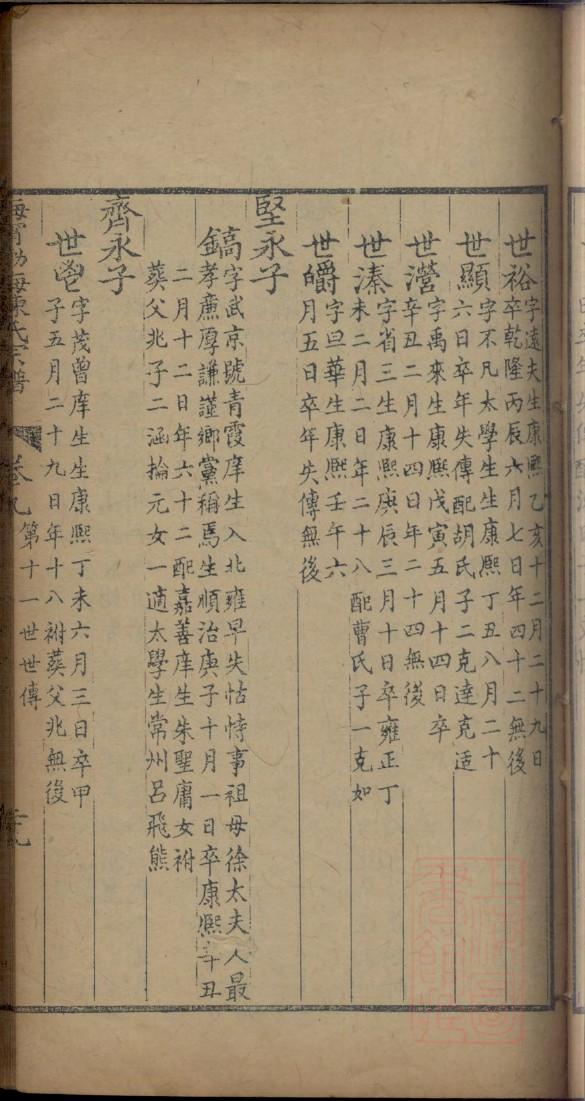 世裕字遠夫生康熙乙亥十二月二十九日
卒乾隆丙辰六月七日年四十二無後
世顯字不凡太學生生康熙丁丑八月二十
六日卒年失傳配胡氏子二克達克适
世瀯字禹來生康熙戊寅五月十四日卒
辛丑二月十四日年二十四無後
世溱字省三生康熙庚辰三月十日卒雍正丁
未二月二日年二十八配曹氏子一克如
世皭字旦華生康熙壬午六
月五日卒年失傳無後
堅永子
鎬字武京號青霞庠生入北雍早失怙恃事祖母徐太夫人最
孝廉厚謙謹鄉黨稱焉生順治庚子十月一日卒康熙辛丑
二月十二日年六十二配嘉善庠生朱聖庸女祔
葬父兆子二涵掄元女一適太學生常州呂飛熊
齊永子
字茂曾庠生生康熙丁未六月三日卒甲
子五月二十九日年十八祔葬父兆無後
海寧渤海陳氏宗譜
卷九
第十一世世傳